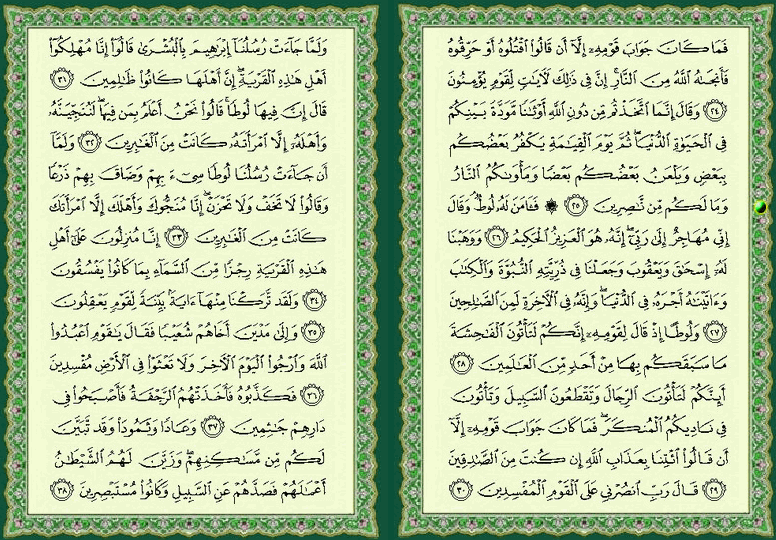 فَمَا كَانَ جَوَابَ قَوْمِهِۦٓ إِلَّآ أَن قَالُوا۟ ٱقْتُلُوهُ أَوْ حَرِّقُوهُ
فَأَنجَىٰهُ ٱللَّهُ مِنَ ٱلنَّارِ ۚ إِنَّ فِى ذَٰلِكَ لَـَٔايَـٰتٍ لِّقَوْمٍ يُؤْمِنُونَ
﴿٢٤﴾ وَقَالَ إِنَّمَا ٱتَّخَذْتُم مِّن دُونِ ٱللَّهِ أَوْثَـٰنًا مَّوَدَّةَ بَيْنِكُمْ
فِى ٱلْحَيَوٰةِ ٱلدُّنْيَا ۖ ثُمَّ يَوْمَ ٱلْقِيَـٰمَةِ يَكْفُرُ بَعْضُكُم
بِبَعْضٍ وَيَلْعَنُ بَعْضُكُم بَعْضًا وَمَأْوَىٰكُمُ ٱلنَّارُ
وَمَا لَكُم مِّن نَّـٰصِرِينَ ﴿٢٥﴾ ۞ فَـَٔامَنَ لَهُۥ لُوطٌ ۘ وَقَالَ
إِنِّى مُهَاجِرٌ إِلَىٰ رَبِّىٓ ۖ إِنَّهُۥ هُوَ ٱلْعَزِيزُ ٱلْحَكِيمُ ﴿٢٦﴾ وَوَهَبْنَا
لَهُۥٓ إِسْحَـٰقَ وَيَعْقُوبَ وَجَعَلْنَا فِى ذُرِّيَّتِهِ ٱلنُّبُوَّةَ وَٱلْكِتَـٰبَ
وَءَاتَيْنَـٰهُ أَجْرَهُۥ فِى ٱلدُّنْيَا ۖ وَإِنَّهُۥ فِى ٱلْـَٔاخِرَةِ لَمِنَ ٱلصَّـٰلِحِينَ
﴿٢٧﴾ وَلُوطًا إِذْ قَالَ لِقَوْمِهِۦٓ إِنَّكُمْ لَتَأْتُونَ ٱلْفَـٰحِشَةَ
مَا سَبَقَكُم بِهَا مِنْ أَحَدٍ مِّنَ ٱلْعَـٰلَمِينَ ﴿٢٨﴾
أَئِنَّكُمْ لَتَأْتُونَ ٱلرِّجَالَ وَتَقْطَعُونَ ٱلسَّبِيلَ وَتَأْتُونَ
فِى نَادِيكُمُ ٱلْمُنكَرَ ۖ فَمَا كَانَ جَوَابَ قَوْمِهِۦٓ إِلَّآ
أَن قَالُوا۟ ٱئْتِنَا بِعَذَابِ ٱللَّهِ إِن كُنتَ مِنَ ٱلصَّـٰدِقِينَ
﴿٢٩﴾ قَالَ رَبِّ ٱنصُرْنِى عَلَى ٱلْقَوْمِ ٱلْمُفْسِدِينَ ﴿٣٠﴾
وَلَمَّا جَآءَتْ رُسُلُنَآ إِبْرَٰهِيمَ بِٱلْبُشْرَىٰ قَالُوٓا۟ إِنَّا مُهْلِكُوٓا۟
أَهْلِ هَـٰذِهِ ٱلْقَرْيَةِ ۖ إِنَّ أَهْلَهَا كَانُوا۟ ظَـٰلِمِينَ ﴿٣١﴾
قَالَ إِنَّ فِيهَا لُوطًا ۚ قَالُوا۟ نَحْنُ أَعْلَمُ بِمَن فِيهَا ۖ لَنُنَجِّيَنَّهُۥ
وَأَهْلَهُۥٓ إِلَّا ٱمْرَأَتَهُۥ كَانَتْ مِنَ ٱلْغَـٰبِرِينَ ﴿٣٢﴾ وَلَمَّآ
أَن جَآءَتْ رُسُلُنَا لُوطًا سِىٓءَ بِهِمْ وَضَاقَ بِهِمْ ذَرْعًا
وَقَالُوا۟ لَا تَخَفْ وَلَا تَحْزَنْ ۖ إِنَّا مُنَجُّوكَ وَأَهْلَكَ إِلَّا ٱمْرَأَتَكَ
كَانَتْ مِنَ ٱلْغَـٰبِرِينَ ﴿٣٣﴾ إِنَّا مُنزِلُونَ عَلَىٰٓ أَهْلِ
هَـٰذِهِ ٱلْقَرْيَةِ رِجْزًا مِّنَ ٱلسَّمَآءِ بِمَا كَانُوا۟ يَفْسُقُونَ
﴿٣٤﴾ وَلَقَد تَّرَكْنَا مِنْهَآ ءَايَةًۢ بَيِّنَةً لِّقَوْمٍ يَعْقِلُونَ
﴿٣٥﴾ وَإِلَىٰ مَدْيَنَ أَخَاهُمْ شُعَيْبًا فَقَالَ يَـٰقَوْمِ ٱعْبُدُوا۟
ٱللَّهَ وَٱرْجُوا۟ ٱلْيَوْمَ ٱلْـَٔاخِرَ وَلَا تَعْثَوْا۟ فِى ٱلْأَرْضِ مُفْسِدِينَ
﴿٣٦﴾ فَكَذَّبُوهُ فَأَخَذَتْهُمُ ٱلرَّجْفَةُ فَأَصْبَحُوا۟ فِى
دَارِهِمْ جَـٰثِمِينَ ﴿٣٧﴾ وَعَادًا وَثَمُودَا۟ وَقَد تَّبَيَّنَ
لَكُم مِّن مَّسَـٰكِنِهِمْ ۖ وَزَيَّنَ لَهُمُ ٱلشَّيْطَـٰنُ
أَعْمَـٰلَهُمْ فَصَدَّهُمْ عَنِ ٱلسَّبِيلِ وَكَانُوا۟ مُسْتَبْصِرِينَ ﴿٣٨﴾